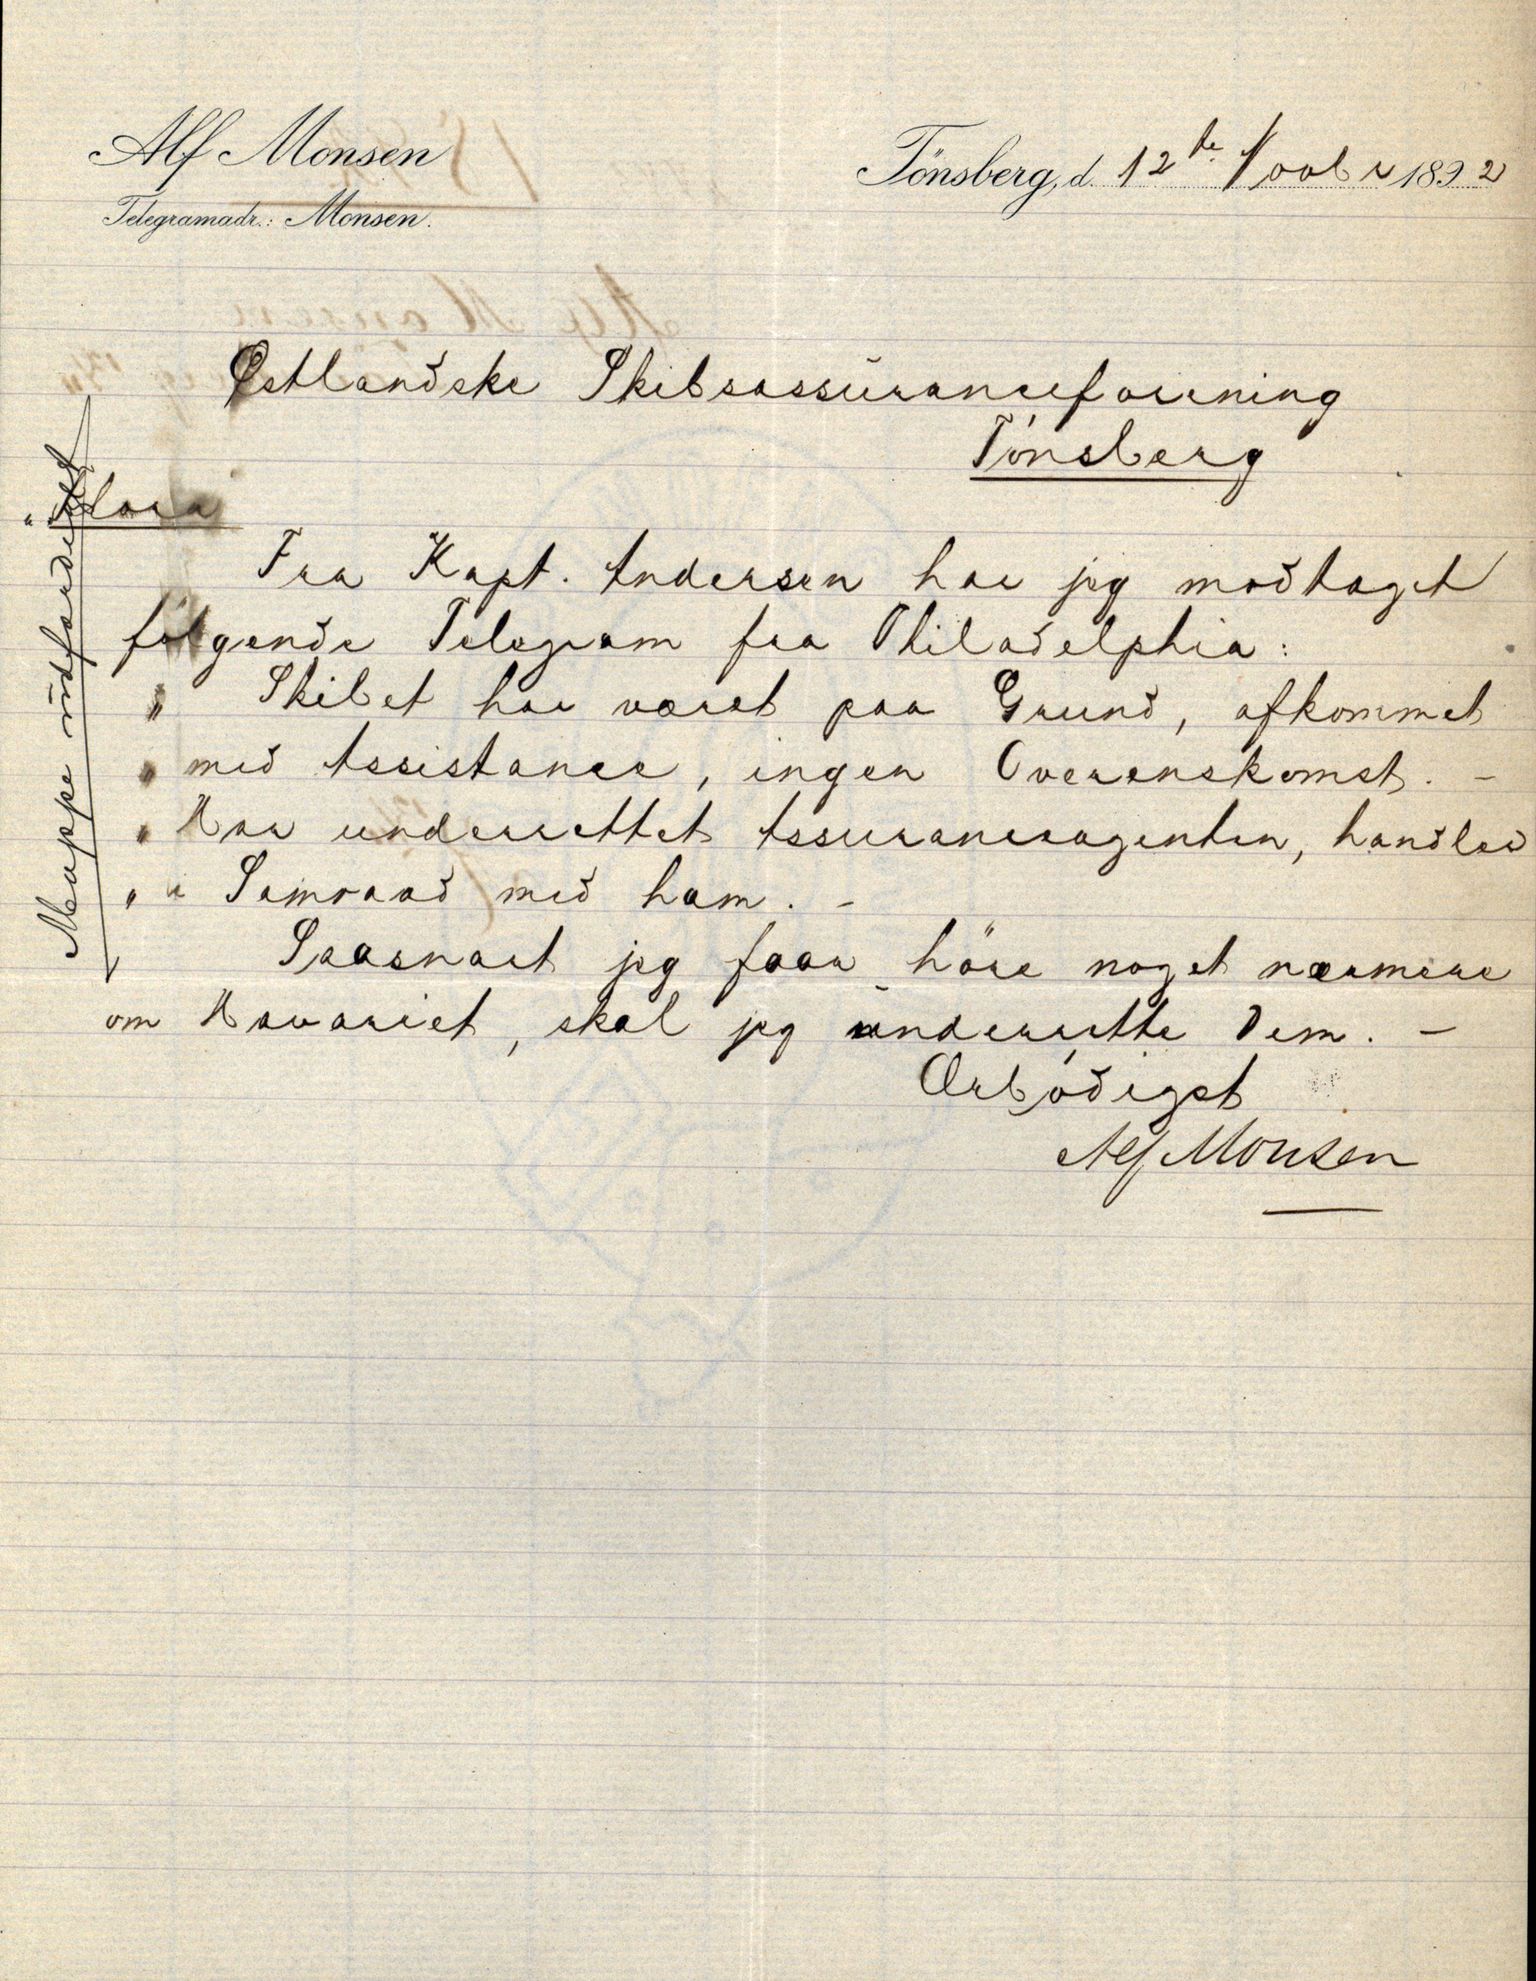 Alf Monsen
Telegramadr.: Monsen.
Tönsberg, d. 12te Novbr 1892
Østlandske Skibsassuranceforening
Tønsberg
"Klara"
Mappe udfærdiget
Fra Kapt. Andersen har jeg modtaget
følgende Telegram fra Philadelphia:
" Skibet har været paa Grund, afkommet
" med Assistance, ingen Overenskomst. –
" Har underrettet Assuranceagenten, handler
" i Samraad med ham. –
Saasnart jeg faar höre noget nærmere
om Havariet, skal jeg underrette Dem. –
Ærbødigst
Alf Monsen